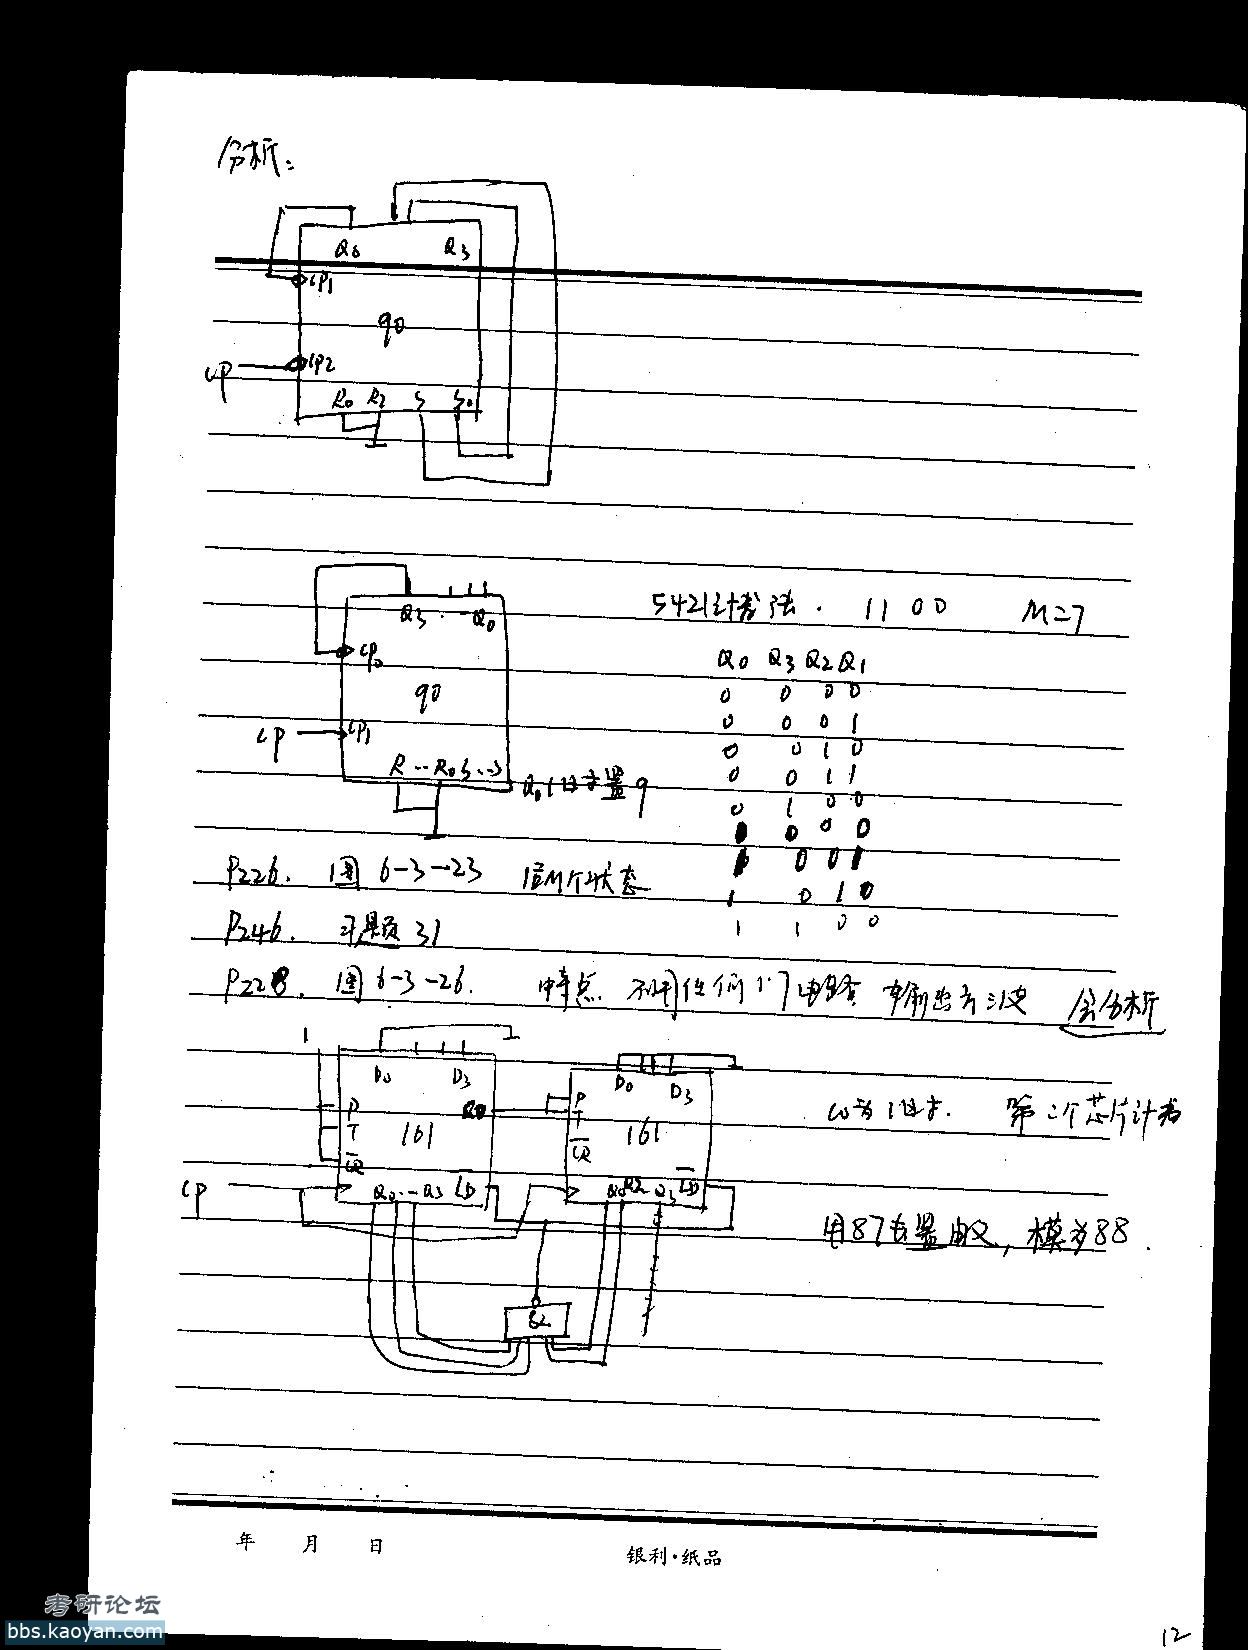 分析:
Q0 Q3
CP1
90
CP CP2
R0 R2 S S0
Q3 ·· Q0
CP0
90
CP CP1
R ·· R0 S ·· S Q0 1时才置9
5421计数法. 1100 M=7
Q0 Q3 Q2 Q1
0 0 0 0
0 0 0 1
0 0 1 0
0 0 1 1
0 1 0 0
1 0 0 0
1 0 0 1
1 0 1 0
1 1 0 0
P226. 图6-3-23 状态
P246. 习题31
P228. 图6-3-26. 特点 不用任何门电路 输出方波 会分析
1
D0 D3
P
T 161
CR
CP Q0 ·· Q3 LD
D0 D3
P
T 161
CR
Q0 Q2 Q3 LD
&
CO为1时才. 第二个芯片计数
用87去置, 模为88.
年 月 日
银利·纸品
考研论坛
bbs.kaoyan.com
12